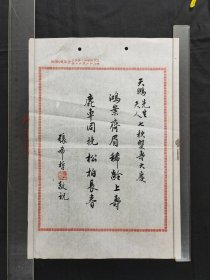 天鵬先生
夫人七秩雙壽大慶
鴻案齊眉稀齡上壽
鹿車同挽松柏長春
張希哲
敬祝